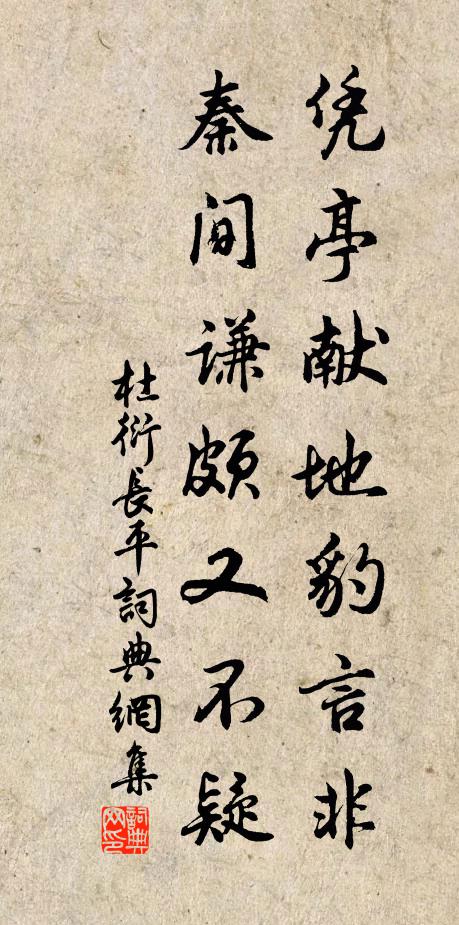 凭亭献地豹言非
秦间谦颇又不疑
杜衍長平詞典網集
詞典网印